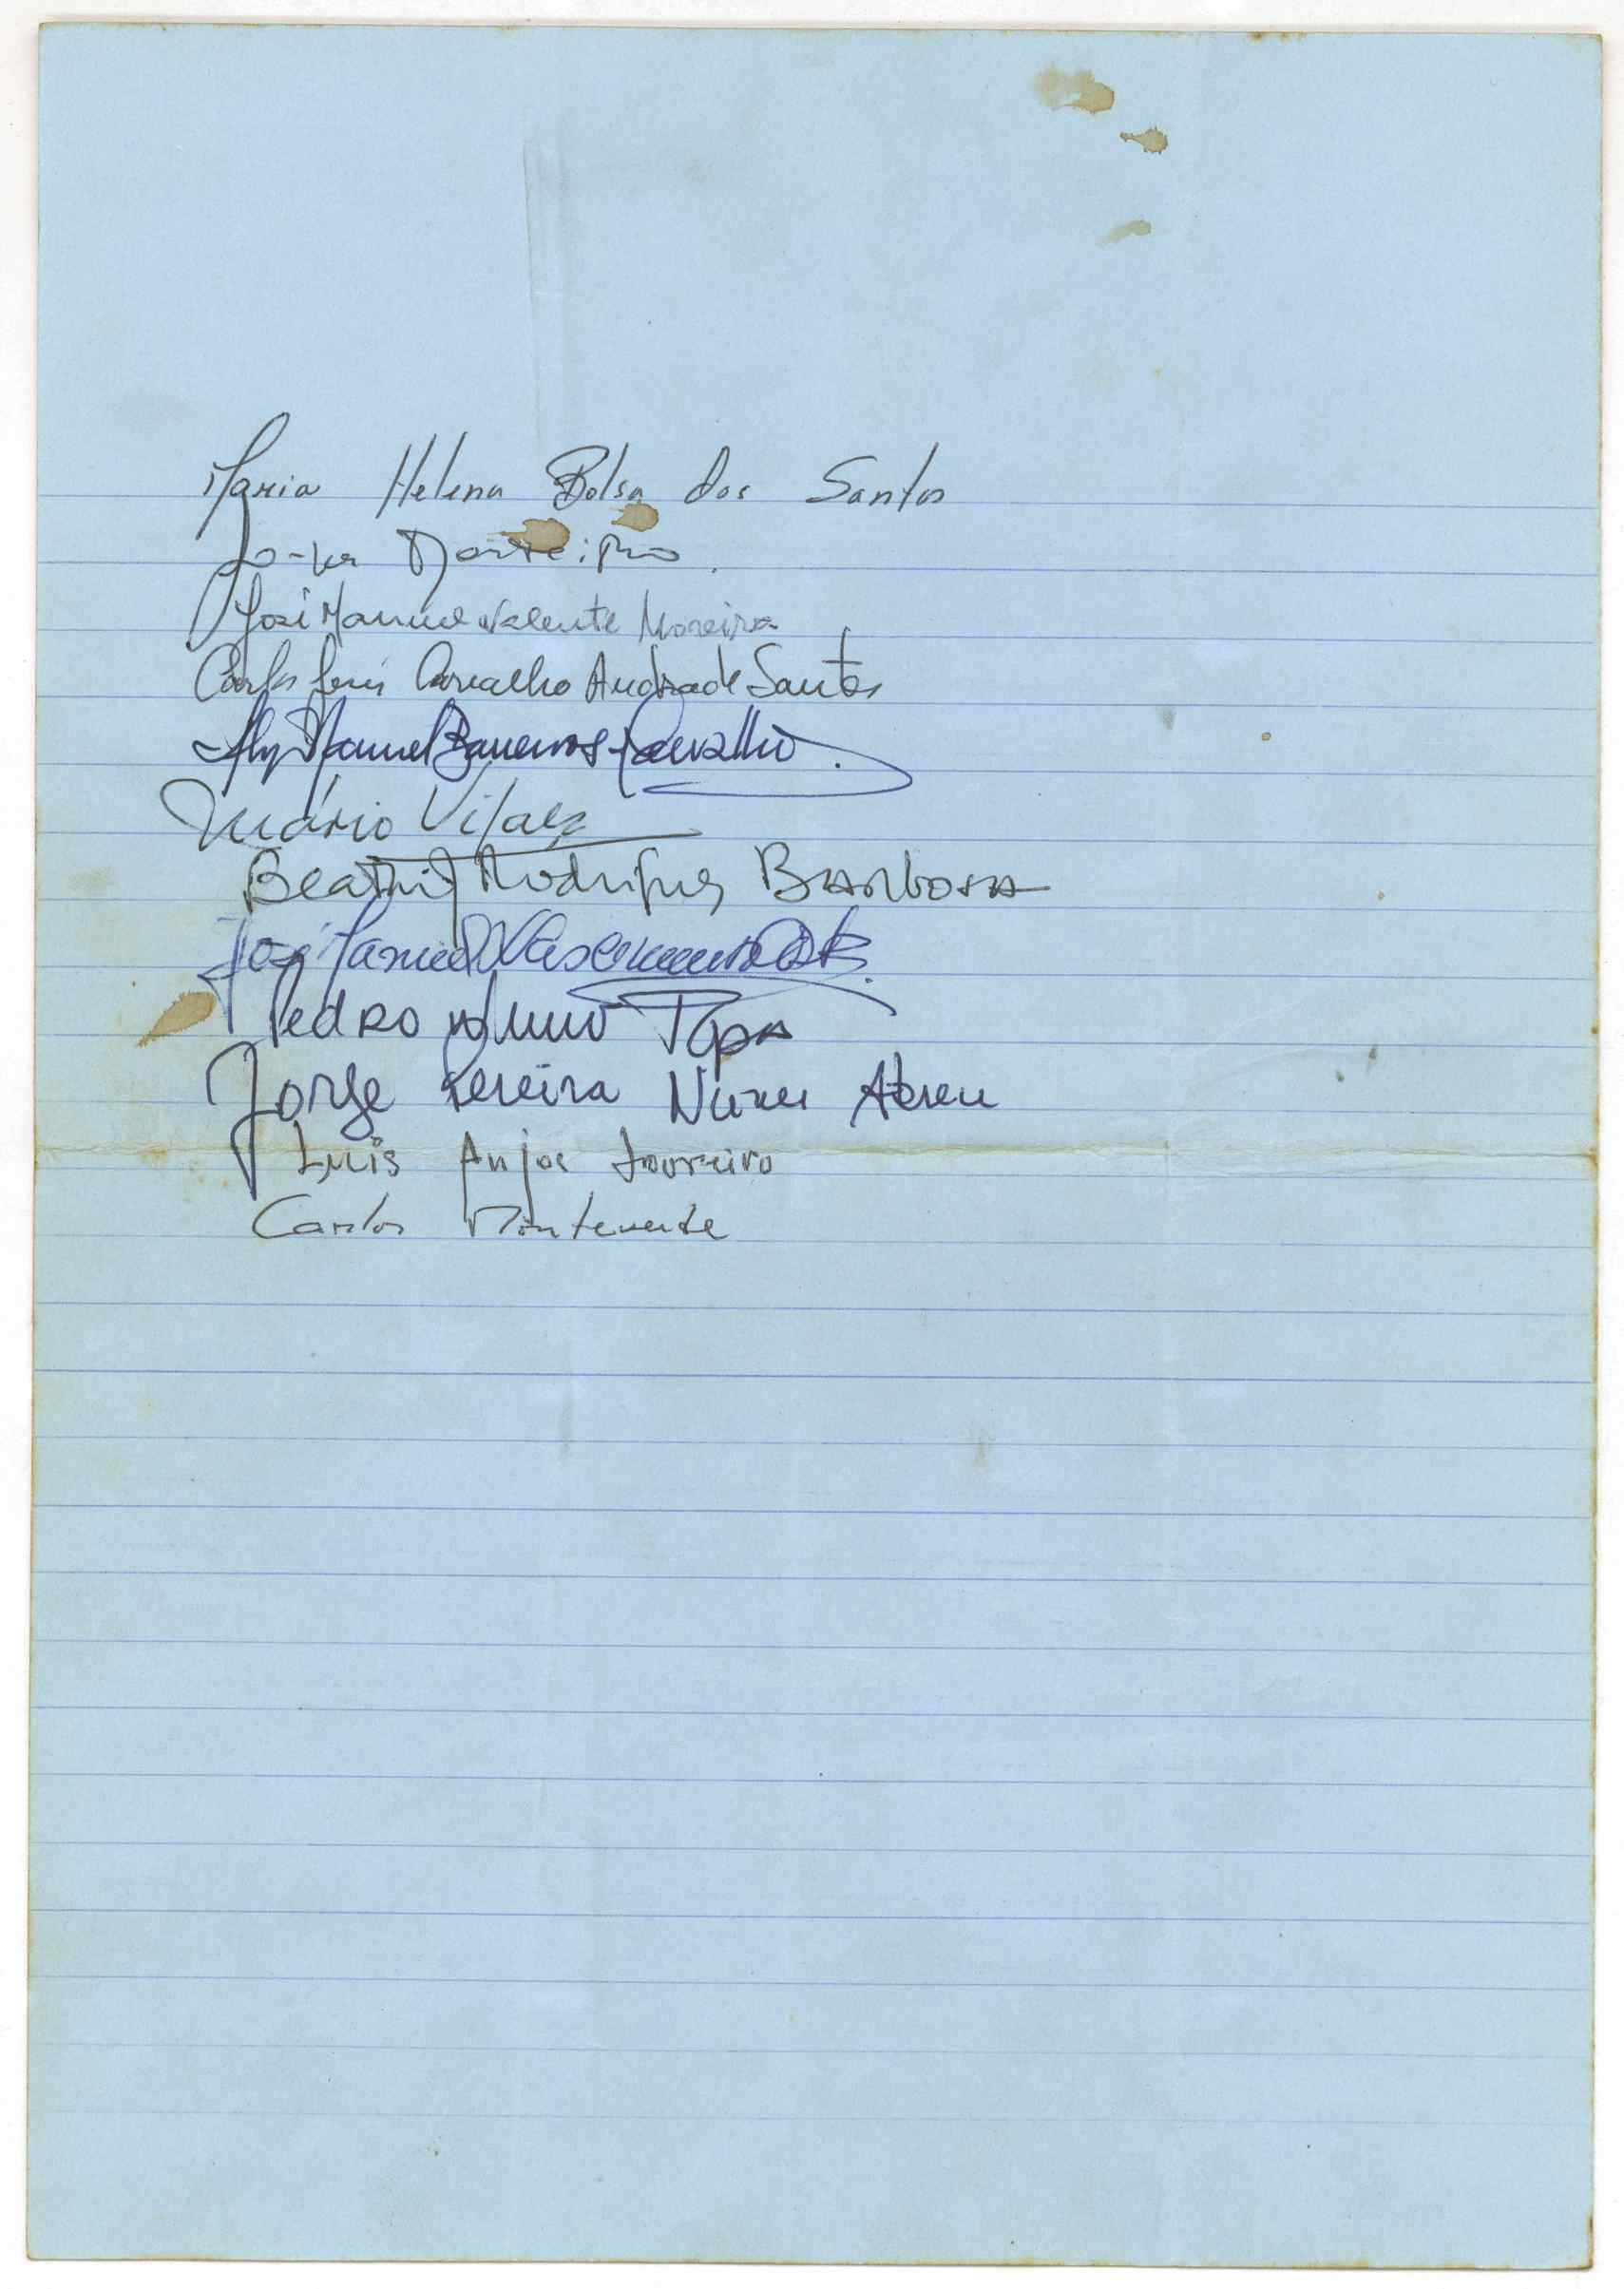 Maria Helena Bolsa dos Santos
Monteiro
José Manuel Valente Moreira
Carlos Luis Carvalho Andrade Santos
Manuel Carvalho
Mário
Beatriz Rodrigues Barbosa
José Manuel
Pedro Nuno Papa
Jorge Pereira Nunes Abreu
Luis Anjos Loureiro
Carlos Monteverde